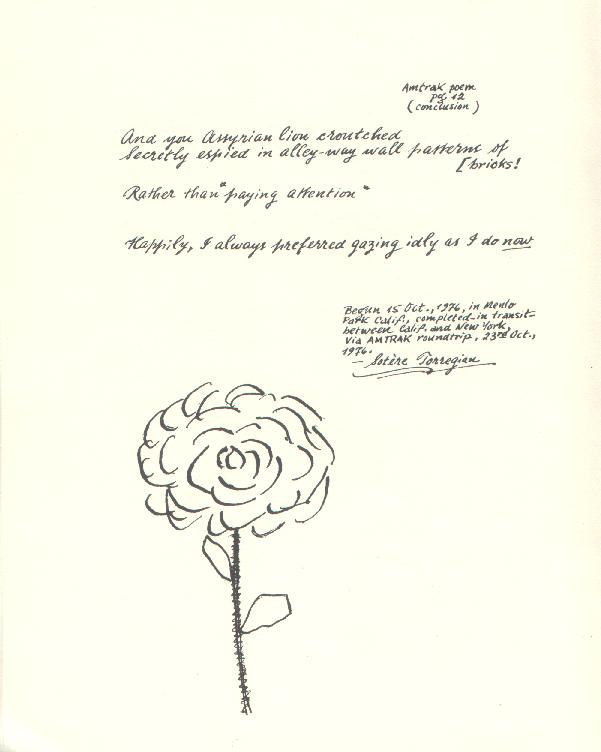 Amtrak poem
pg. 12
(conclusion)
And you Assyrian lion croutched
Secretly espied in alley-way wall patterns of
[bricks!
Rather than "paying attention"
Happily, I always preferred gazing idly as I do now
Begun 15 Oct., 1976, in Menlo
Park Calif., completed in transit
between Calif. and New York,
via AMTRAK roundtrip, 23rd Oct.,
1976.
— Sotère Torregian